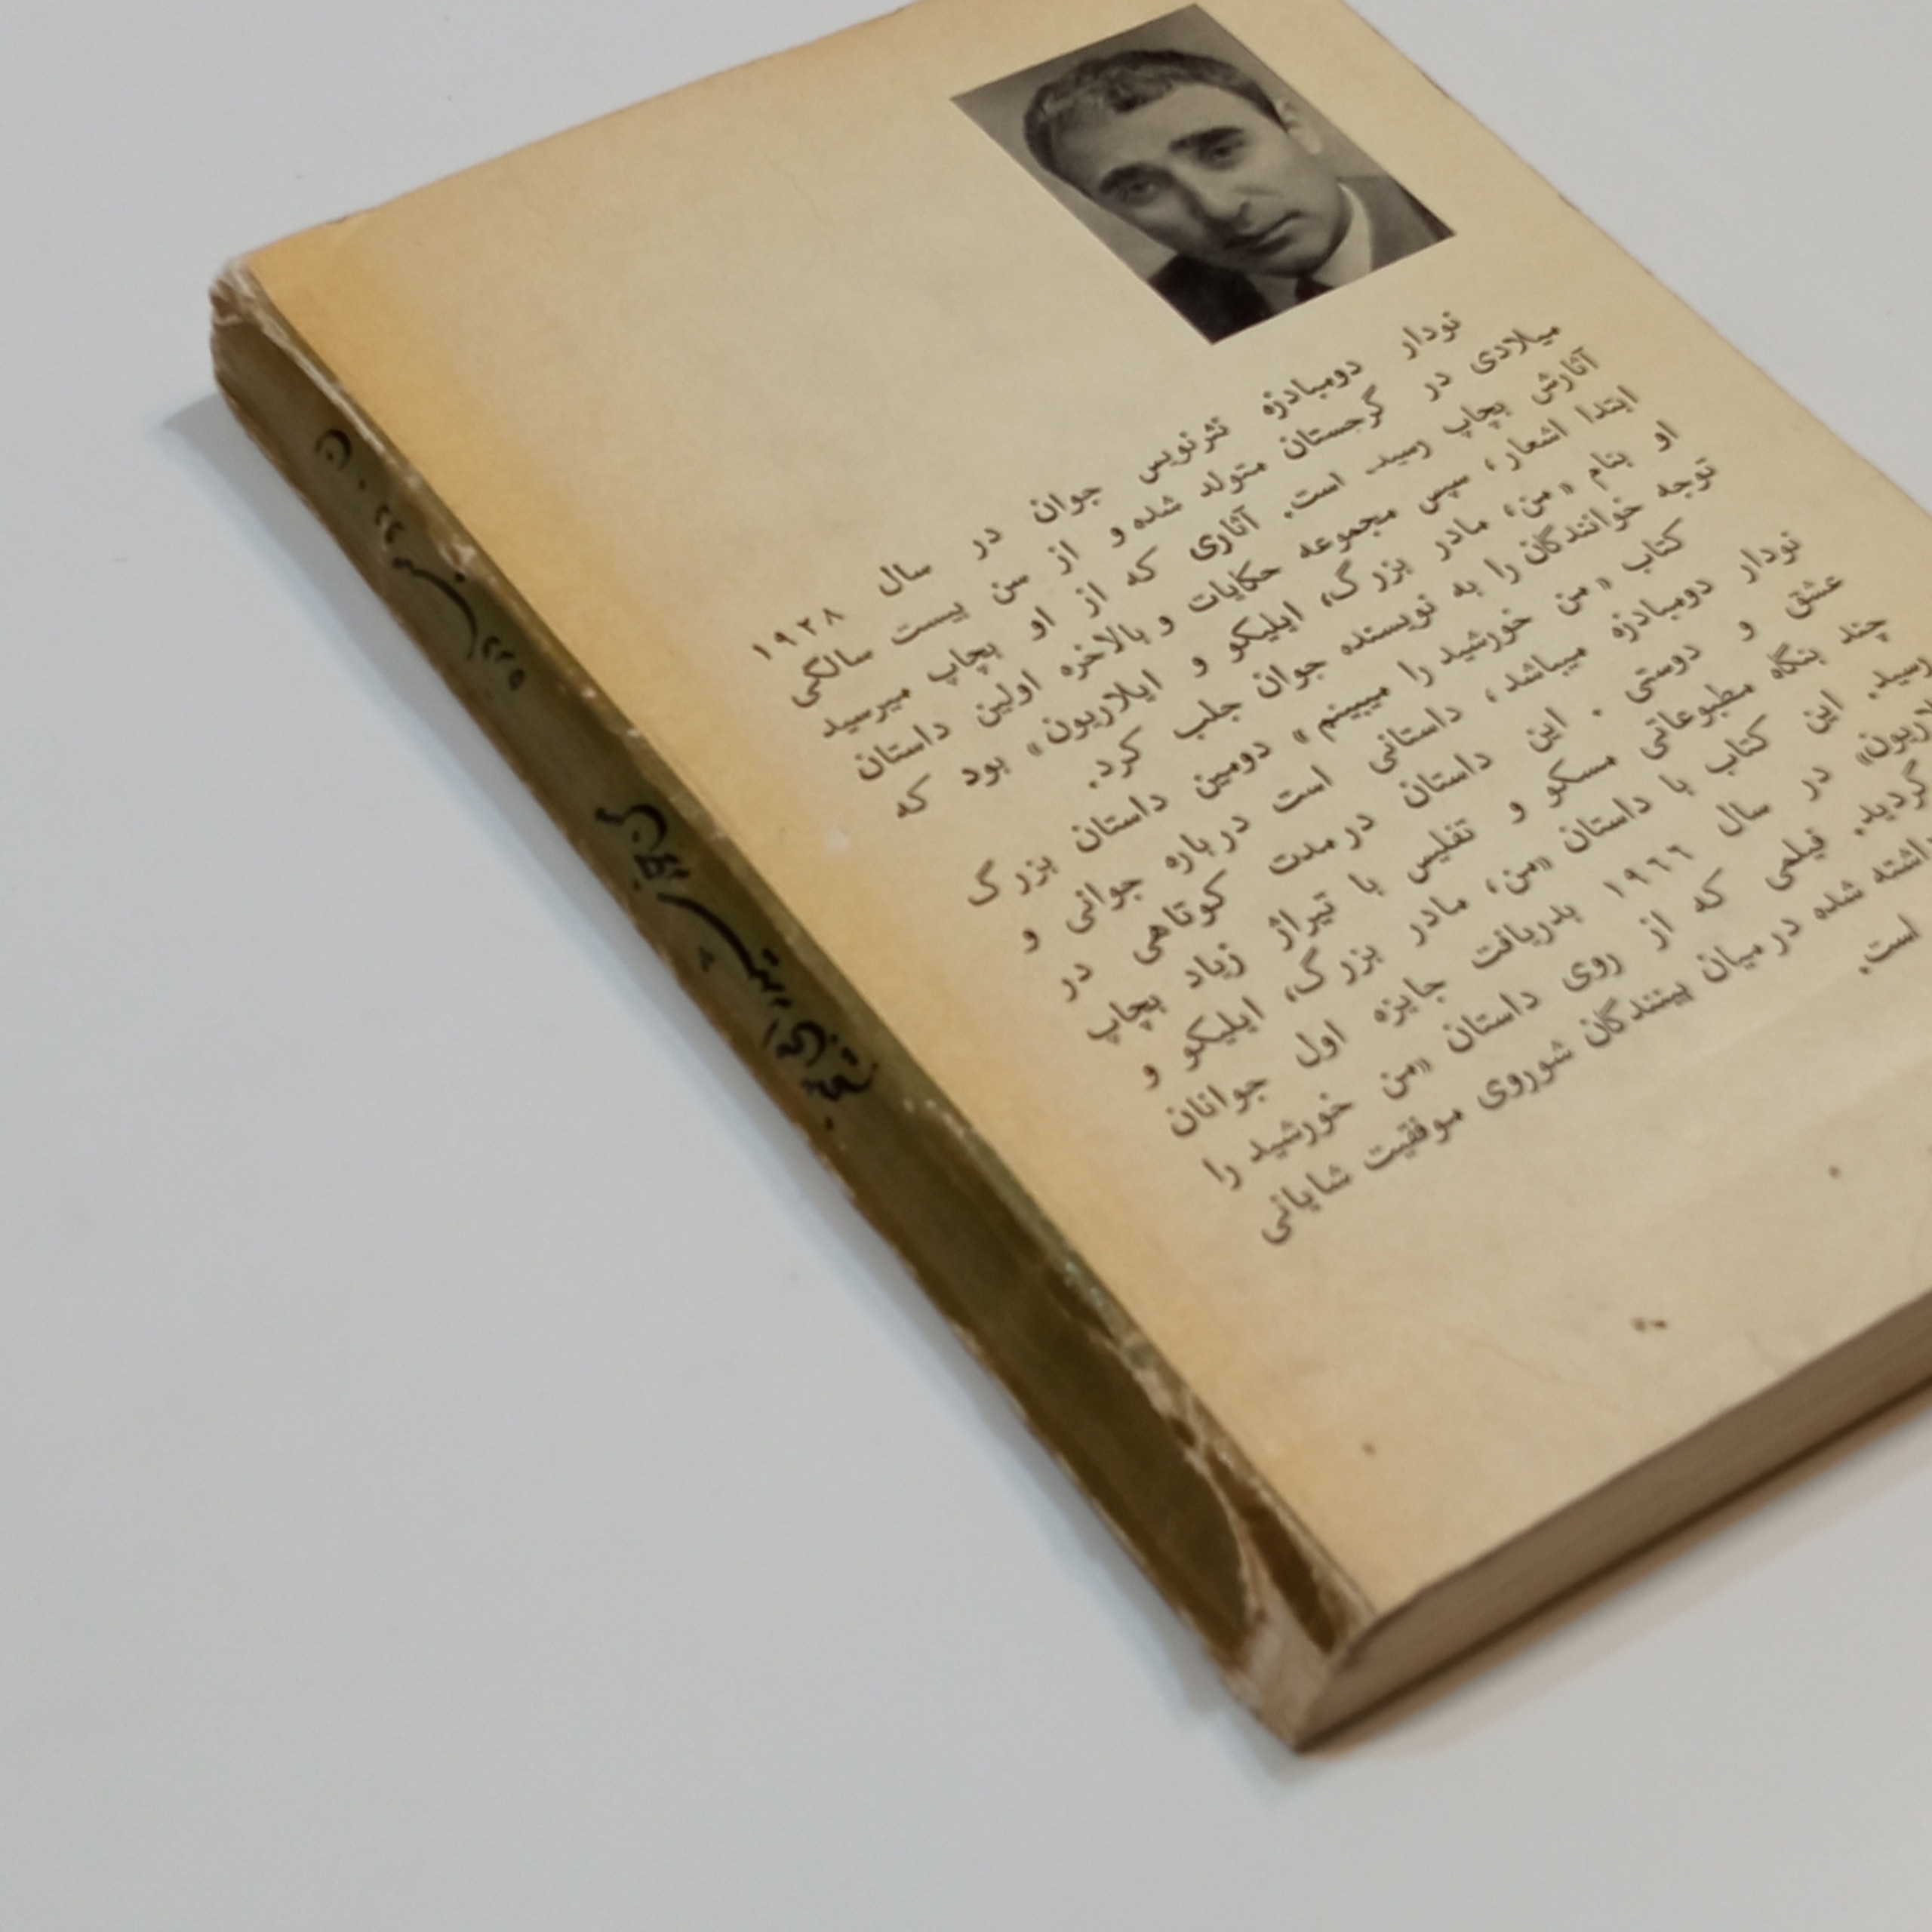 نودار دومبادزه نثرنویس جوان در سال ۱۹۲۸
میلادی در گرجستان متولد شده و از سن بیست سالگی
آثارش بچاپ رسید است. آثاری که از او بچاپ میرسید
ابتدا اشعار، سپس مجموعه حکایات و بالاخره اولین داستان
او بنام «من، مادر بزرگ، ایلیکو و ایلاریون» بود که
توجه خوانندگان را به نویسنده جوان جلب کرد.
کتاب «من خورشید را میبینم» دومین داستان بزرگ
نودار دومبادزه میباشد، داستانی است درباره جوانی و
عشق و دوستی. این داستان در مدت کوتاهی در
چند بنگاه مطبوعاتی مسکو و تفلیس با تیراژ زیاد بچاپ
رسید. این کتاب با داستان «من، مادر بزرگ، ایلیکو و
در سال ۱۹۶۶ بدریافت جایزه اول جوانان
گردید. فیلمی که از روی داستان «من خورشید را
شده در میان بینندگان شوروی موفقیت شایانی
است.